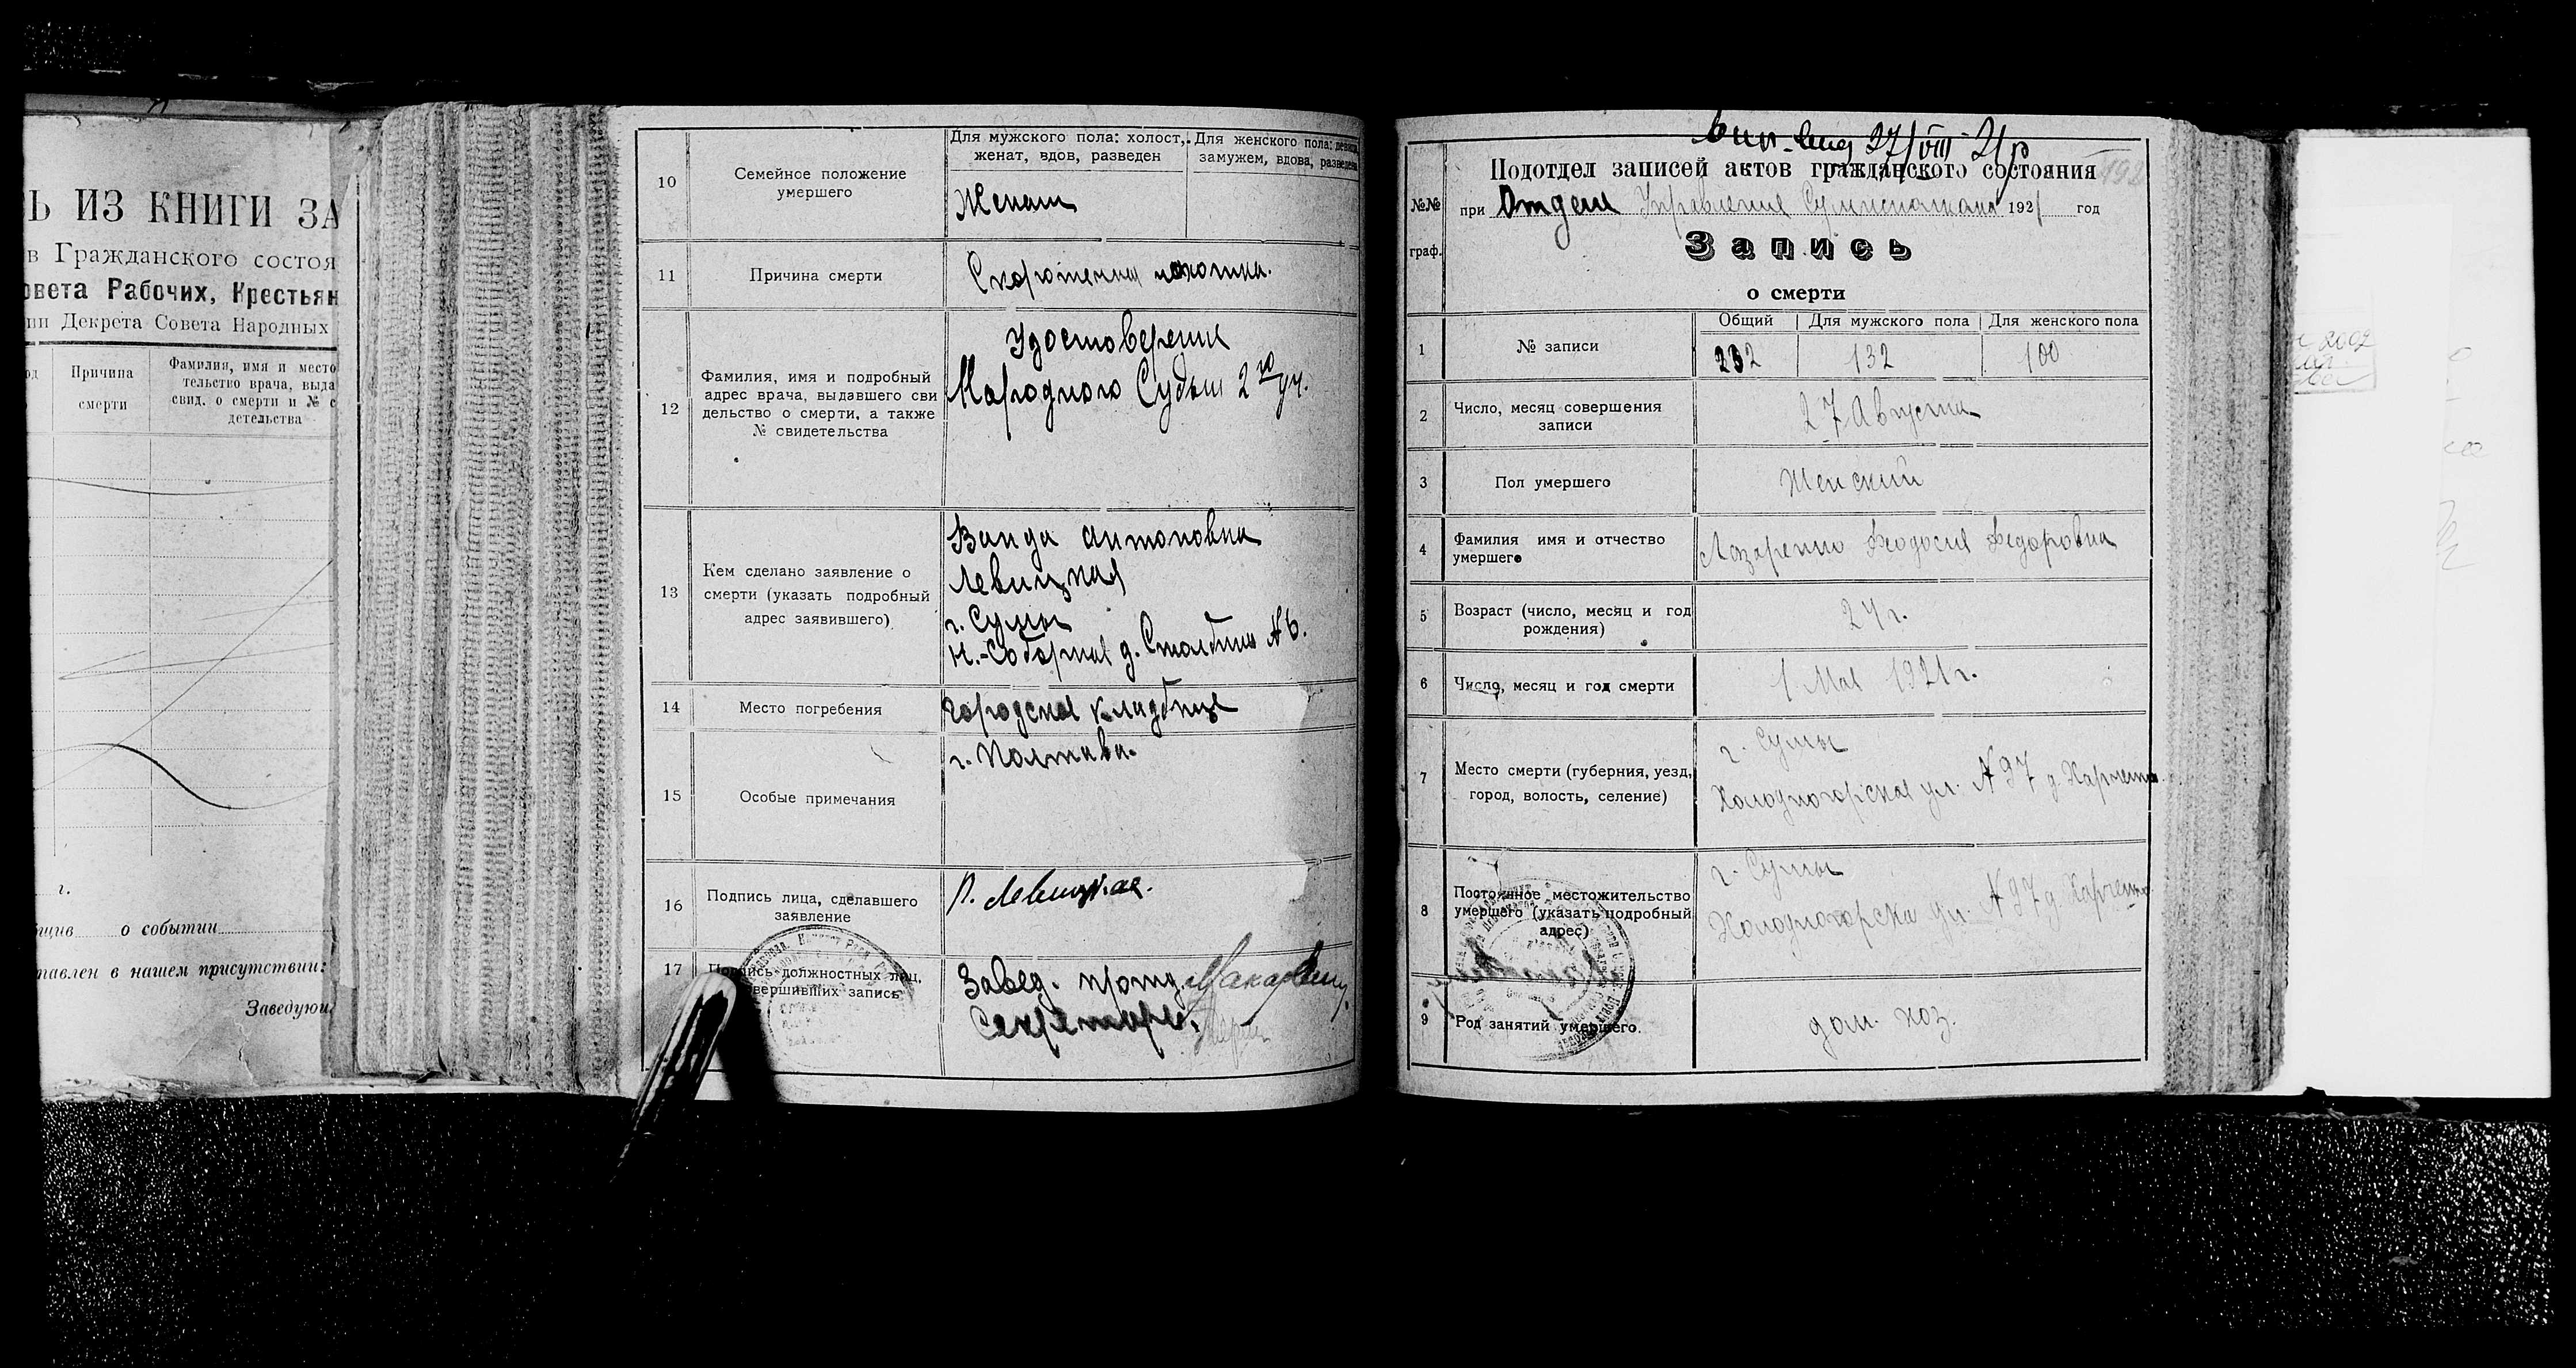 Ь ИЗ КНИГИ ЗА
в Гражданского состоя
овета Рабочих, Крестьян
ии Декрета Совета Народных
од
Причина
смерти
Фамилия, имя и место
тельство врача, выда
свид. о смерти и № с
детельства
г.
щив о событии
тавлен в нашем присутствии:
Заведующ
10
Семейное положение
умершего
Для мужского пола: холост,
женат, вдов, разведен
Для женского пола: девица,
замужем, вдова, разведена
Женат
11
Причина смерти
Скоротечная чахотка.
12
Фамилия, имя и подробный
адрес врача, выдавшего сви
дельство о смерти, а также
№ свидетельства
Удостоверение
Народного Судьи 2го уч.
13
Кем сделано заявление о
смерти (указать подробный
адрес заявившего)
Ванда Антоновна
Левицкая
г. Сумы
Н.-Соборная д. Столбина № 6.
14
Место погребения
городское кладбище
г. Полтава.
15
Особые примечания
16
Подпись лица, сделавшего
заявление
В. Левицкая.
17
Подпись должностных лиц,
совершивших запись
Завед. протд
Секретарь
27/VIII-21 р
Подотдел записей актов гражданского состояния
№№
граф.
при Отделе Управления 1921 год
Запись
о смерти
1
№ записи
Общий
Для мужского пола
Для женского пола
232
132
100
2
Число, месяц совершения
записи
27 Августа
3
Пол умершего
Женский
4
Фамилия имя и отчество
умершего
Лазаренко Феодосия Федоровна
5
Возраст (число, месяц и год
рождения)
24 г.
6
Число, месяц и год смерти
1 Мая 1921 г.
7
Место смерти (губерния, уезд,
город, волость, селение)
г. Сумы
Холодногорская ул. № 97 д. Харченко
8
Постоянное местожительство
умершего (указать подробный
адрес)
г. Сумы
Холодногорская ул. № 97 д. Харченко
9
Род занятий умершего.
дом. хоз.